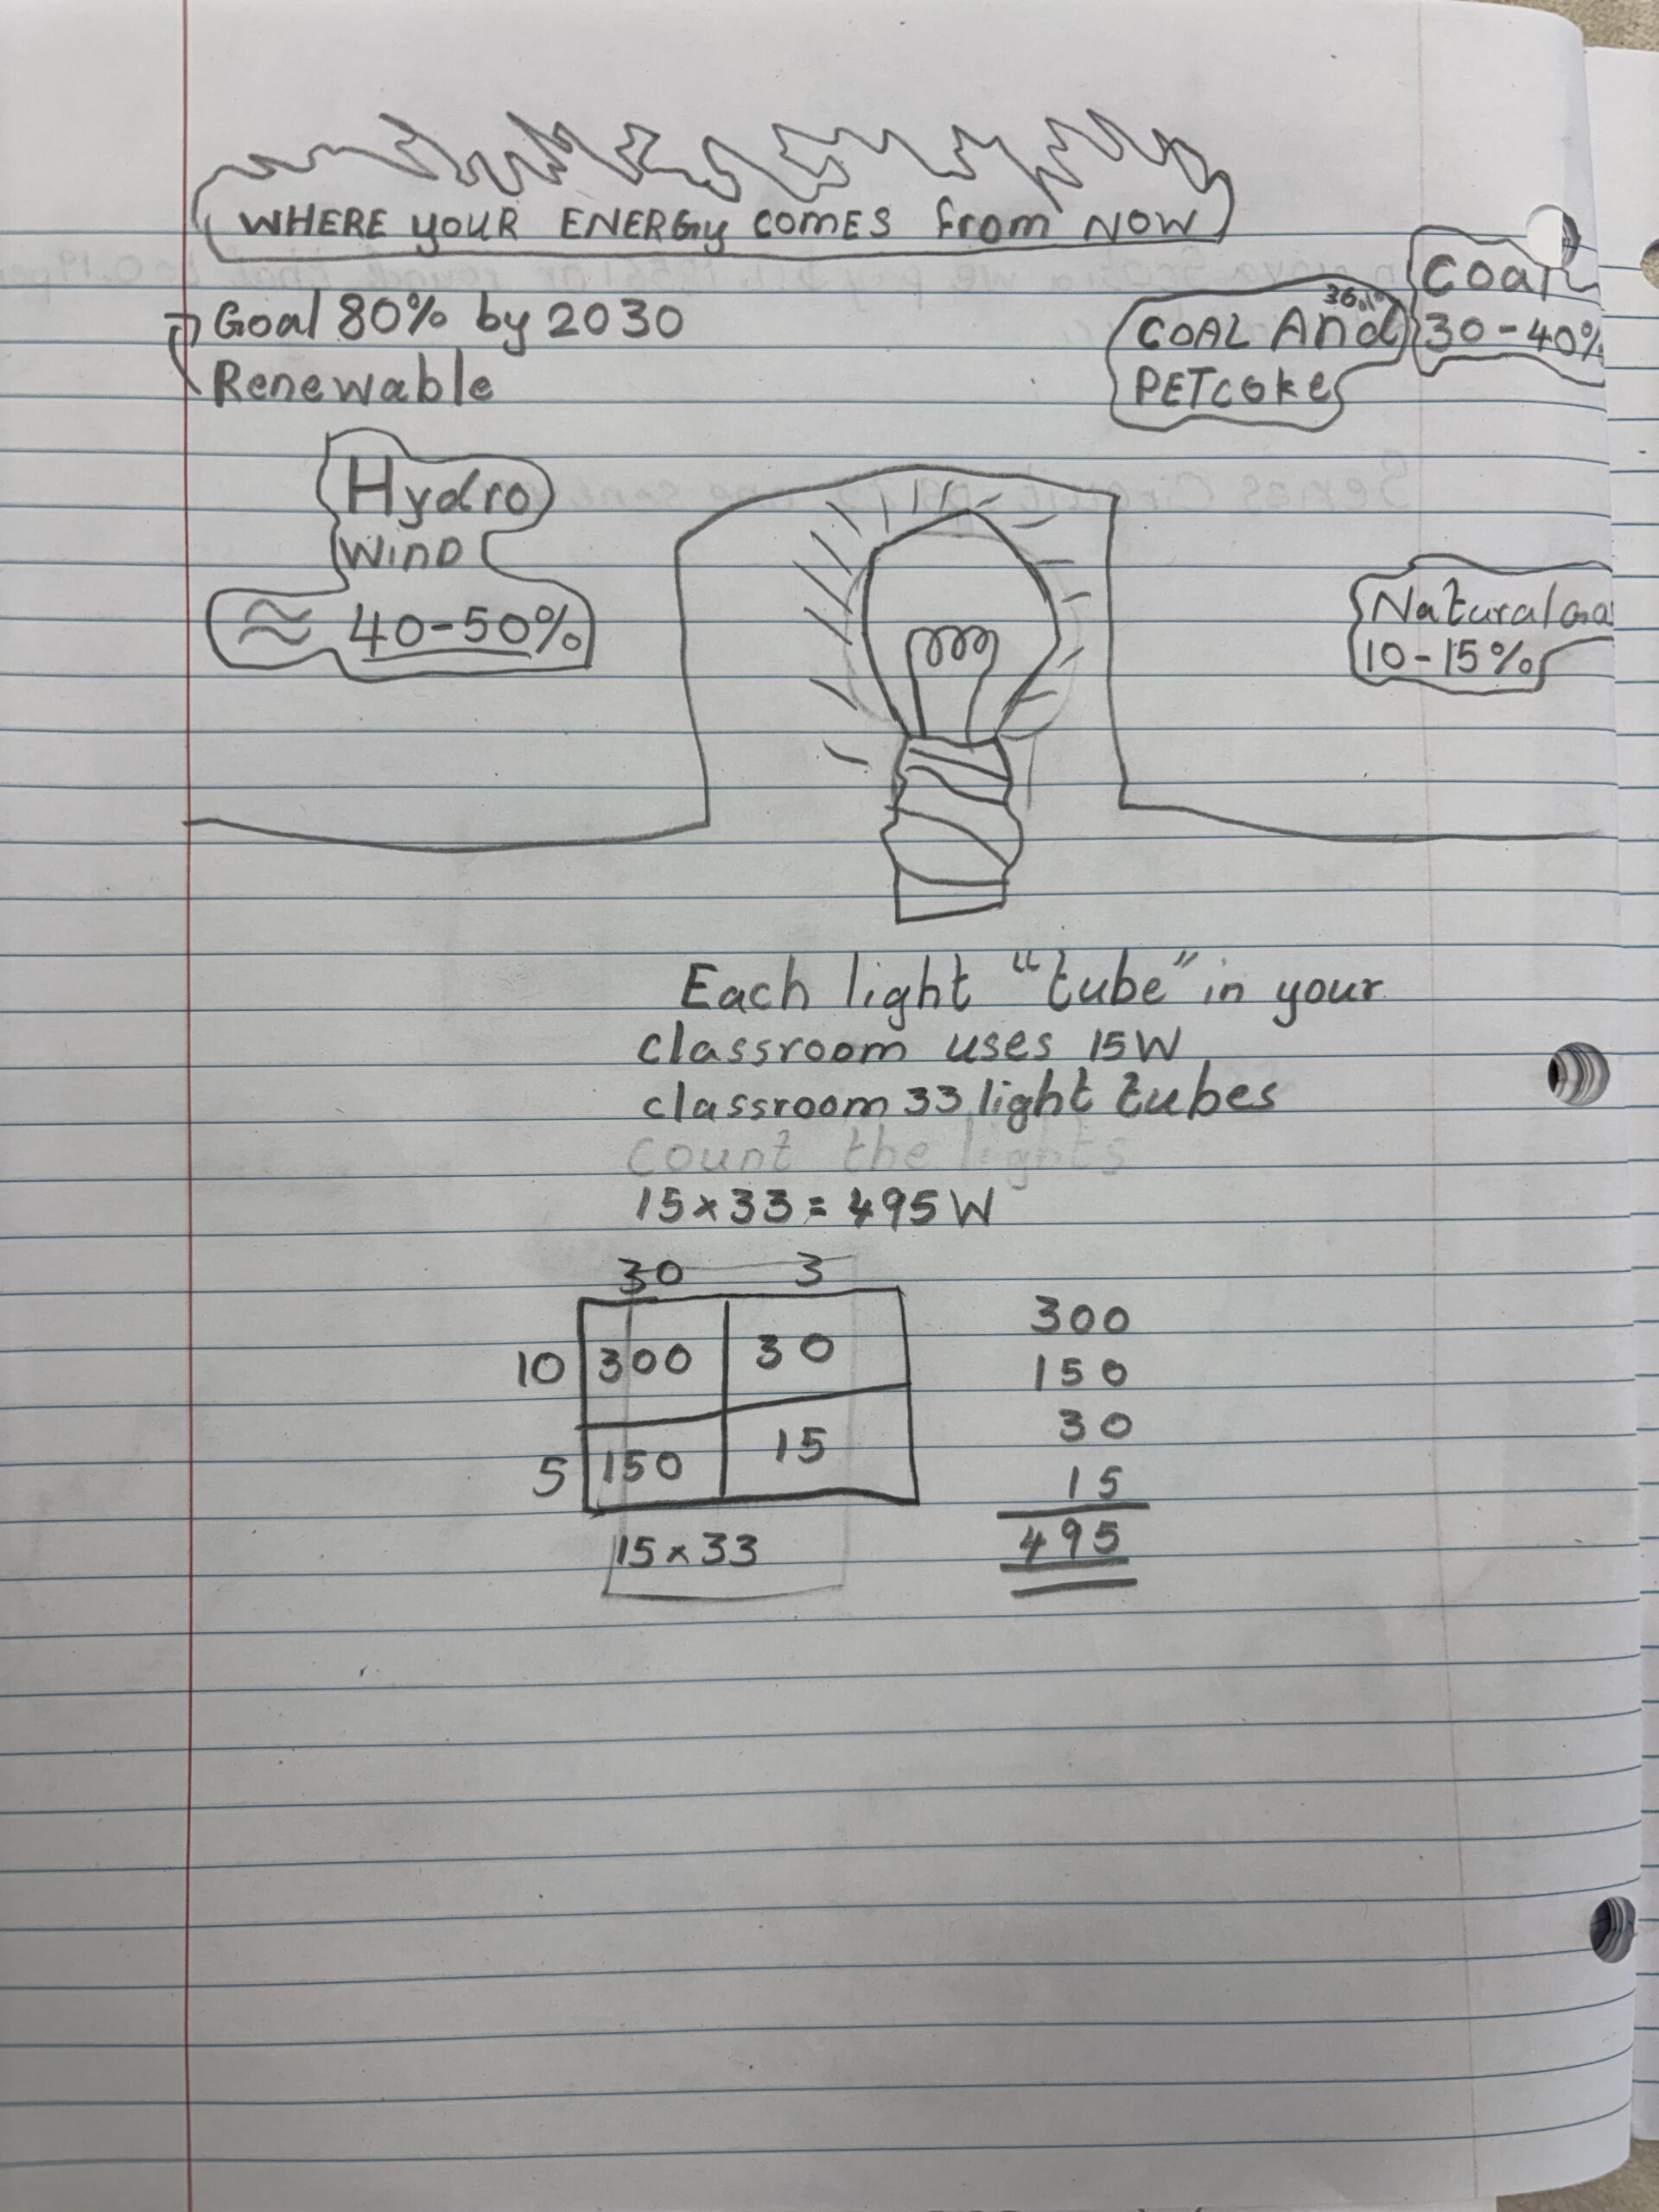 WHERE YOUR ENERGY COMES from NOW
Goal 80% by 2030
Renewable
COAL And
PETcoke
Coal
30-40%
Hydro
WIND
≈ 40-50%
Natural
10-15%
Each light "tube" in your
classroom uses 15W
classroom 33 light tubes
count the lights
15×33=495W
30 3
10 300 30
5 150 15
15×33
300
150
30
15
495